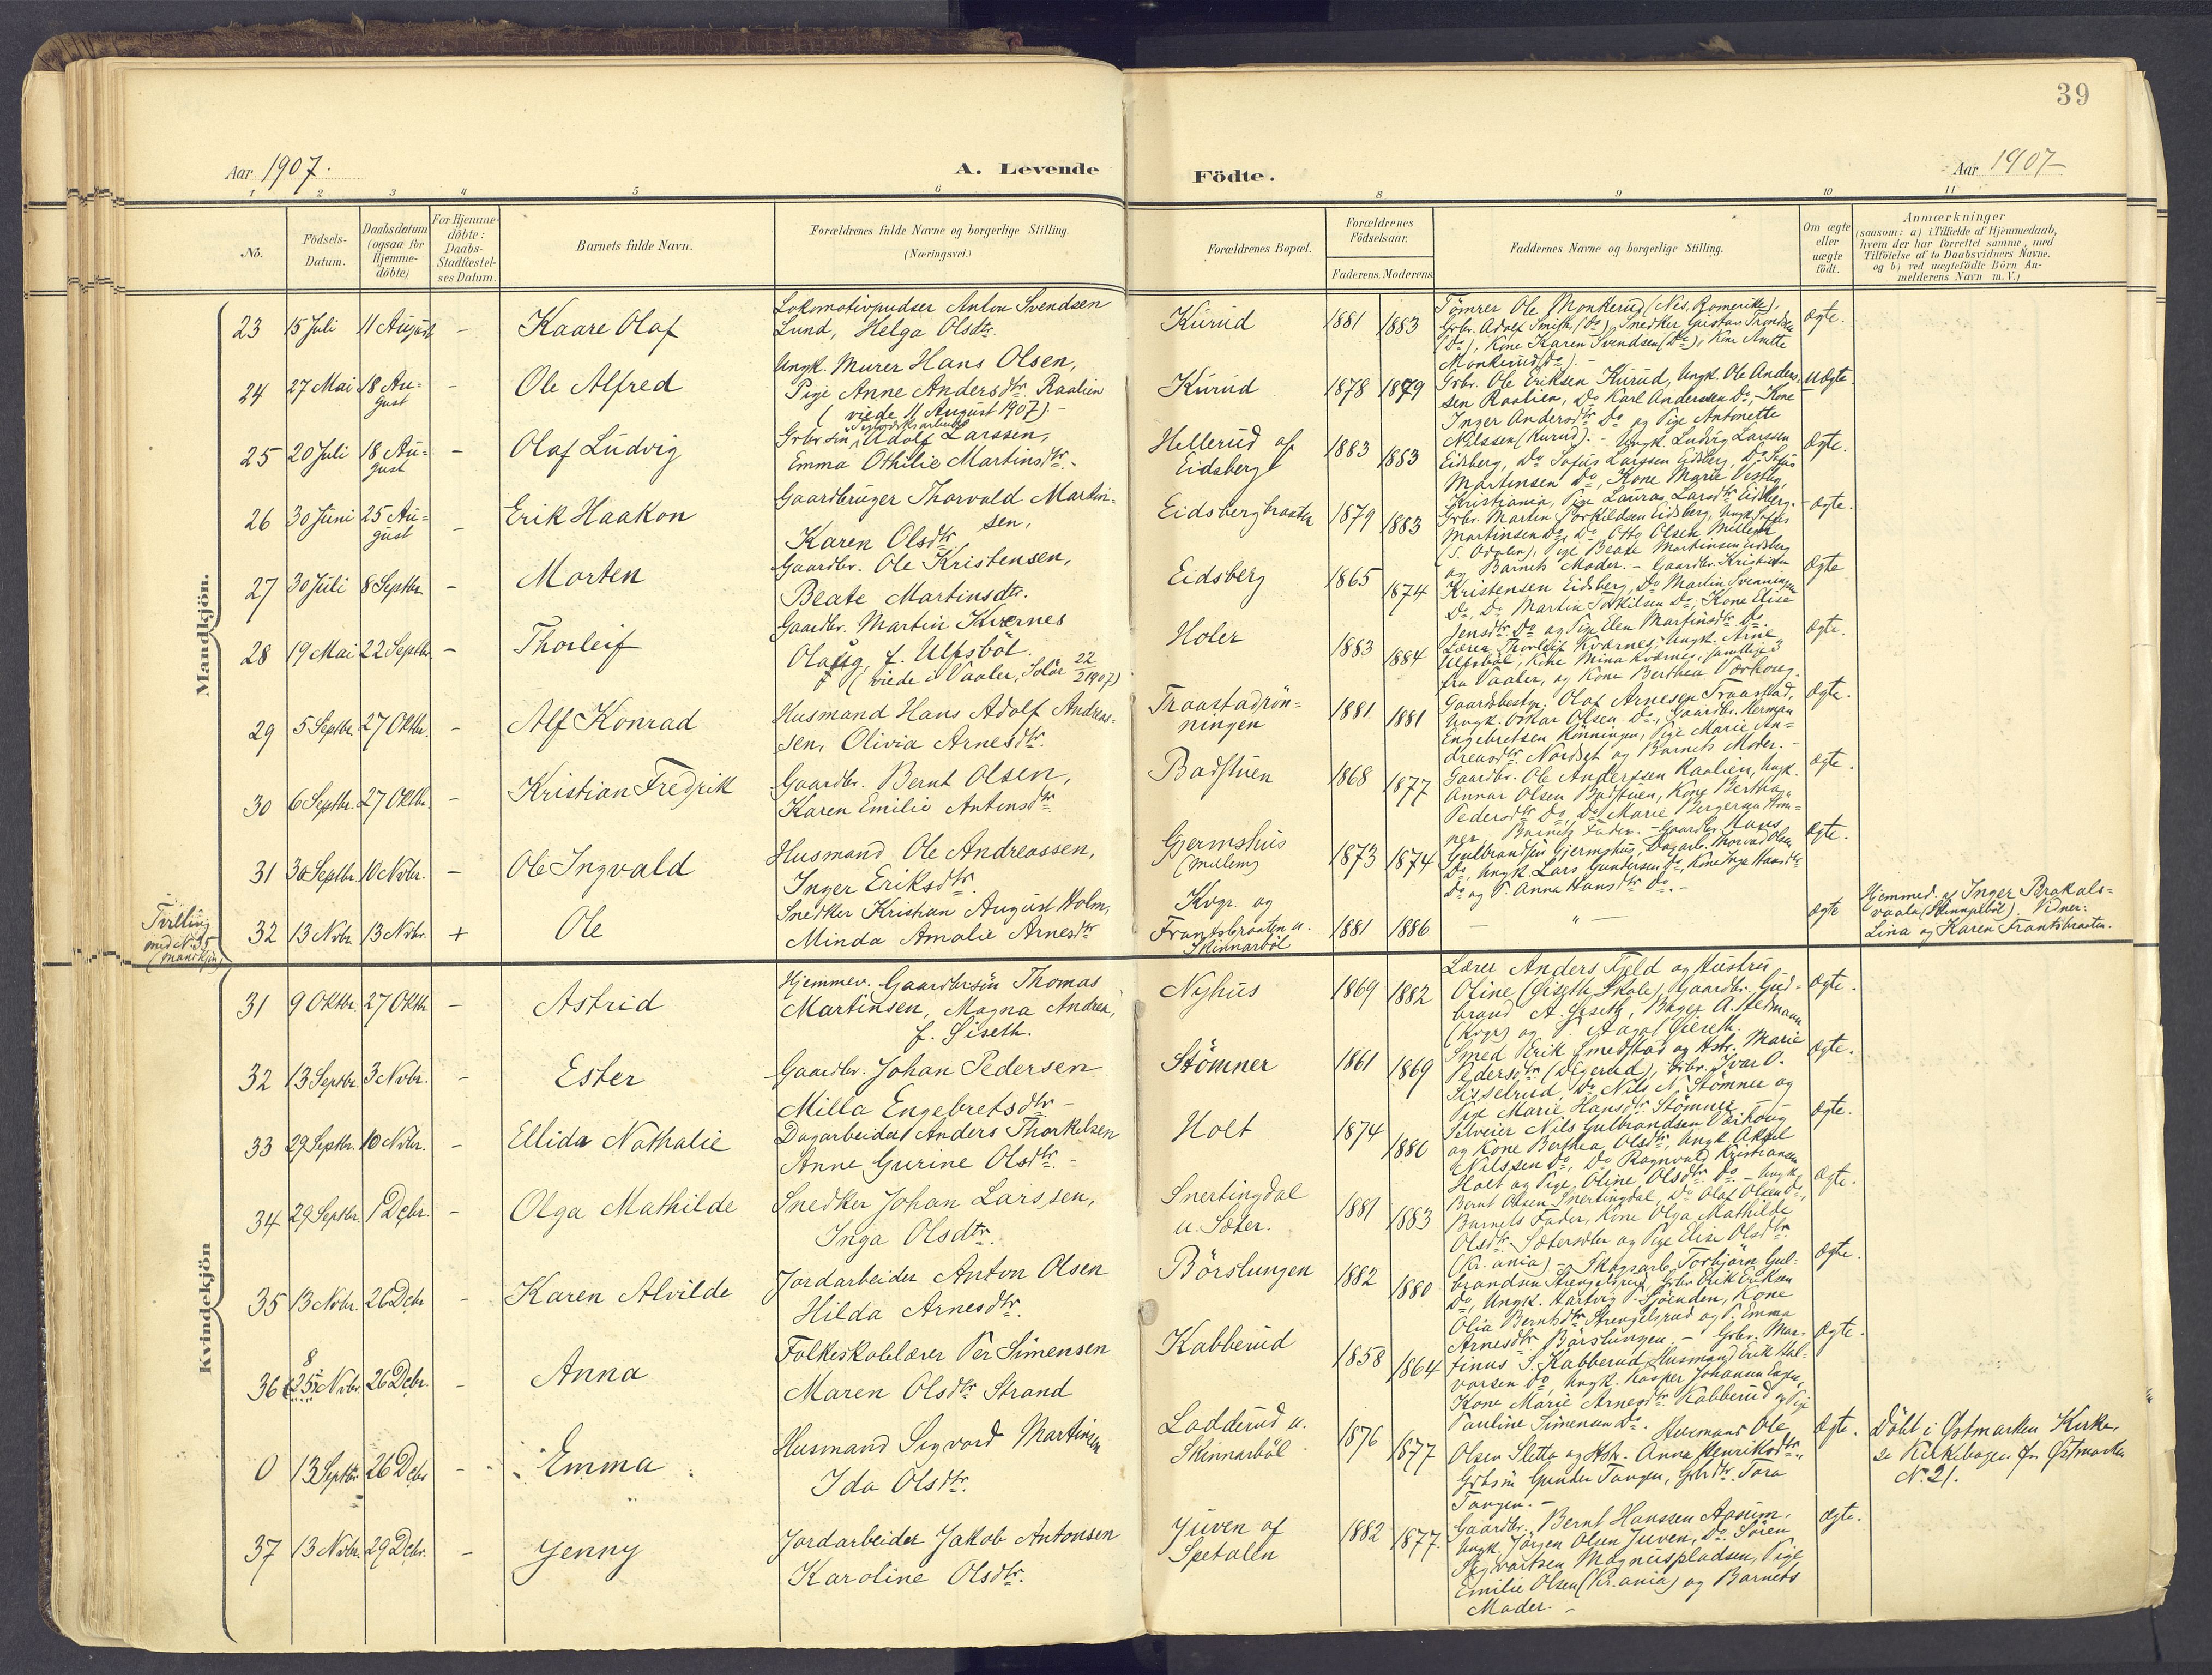 39
Aar 1907.
A. Levende
Födte.
Aar 1907
1 2 3 4 5 6 8 9 10 11
No.
Födsels-
Datum.
Daabsdatum
(ogsaa for
Hjemme-
döbte)
For Hjemme-
döbte:
Daabs-
Stadfæstel-
ses Datum.
Barnets fulde Navn.
Forældrenes fulde Navne og borgerlige Stilling.
(Næringsvei.)
Forældrenes Bopæl.
Forældrenes
Födselsaar.
Faderens. Moderens.
Faddernes Navne og borgerlige Stilling.
Om ægte
eller
uægte
födt.
Anmærkninger
(saasom: a) i Tilfælde af Hjemmedaab,
hvem der har forrettet samme, med
Tilföielse af to Daabsvidners Navne.
og b) ved uægtefödte Börn An-
melderens Navn m.V.)
Mandkjön.
23 15 Juli 11 August - Kaare Olaf
Lokomotivpudser Anton Svendsen
Lund, Helga Olsdtr.
Kurud 1881 1883
Tömrer Ole Monkerud (Nes, Romerike),
Grbr. Adolf Smith (Do), Snedker Gustav
(Do), Kone Karen Svendsen (Do), Kone Anette
Monkerud (Do). -
ægte.
24 27 Mai 18 Au-
gust - Ole Alfred
Ungk. Murer Hans Olsen,
Pige Anne Andersdtr. Raalien
(viede 11 August 1907). -
Kurud 1878 1879
Grbr. Ole Eriksen Kurud, Ungk. Ole Anders-
sen Raalien, Do Karl Anderssen Do, Kone
Inger Andersdtr Do og Pige Antonette
Nilssen (Kurud). -
uægte.
25 20 Juli 18 Au-
gust - Olaf Ludvig
Grbrsön Adolf Larssen,
Emma Othilie Martinsdtr. -
Hellerud af
Eidsberg 1883 1883
Ungk. Ludvig Larssen
Eidsberg, Do Sofus Larssen Eidsberg, Do Sofus
Martinsen Do, Kone Marie Vestby,
Kristiania, Pige Laura Larsdtr Eidsberg. -
ægte.
26 30 Juni 25 Au-
gust - Erik Haakon
Gaardbruger Thorvald Martin-
sen,
Karen Olsdtr
Eidsbergbraaten 1879 1883
Grbr. Martin Torkildsen Eidsberg, Ungk. Sofus
Martinsen Do, Do Otto Olsen Millerth
(S. Odalen), Pige Beate Martinsen Eidsberg
og Barnets Moder. -
ægte.
27 30 Juli 8 Septbr. - Morten
Gaardbr. Ole Kristensen,
Beate Martinsdtr.
Eidsberg 1865 1874
Gaardbr. Kristian
Kristensen Eidsberg, Do Martin Svenningsen
Do, Do Martin Do, Kone Elise
Jensdtr Do og Pige Elen Martinsdtr Do.
ægte
28 19 Mai 22 Septbr. - Thorleif
Gaardbr. Martin Kvernes
Olaug, f. Ulfsböl.
(viede i Vaaler, Solör 22/2 1907)
Holer 1883 1884
Lærer Thorleif Kværnes, Ungk. Arne
Ulfsböl, Kone Mina Kværnes, samtlige 3
fra Vaaler, og Kone Berthea Værhoug.
ægte.
29 5 Septbr. 27 Oktbr. - Alf Konrad
Husmand Hans Adolf Andreas-
sen, Olivia Arnesdtr.
Traastadrön-
ningen 1881 1881
Gaardsbestyr. Olaf Arnesen Traastad,
Ungk. Oskar Olsen Do, Gaardbr. Herman
Engebretsen Rönningen, Pige Marie An-
dreasdtr Nordset og Barnets Moder. -
ægte.
30 6 Septbr. 27 Oktbr. - Kristian Fredrik
Gaardbr. Bernt Olsen,
Karen Emilie Antonsdtr
Badstuen 1868 1877
Gaardbr. Ole Anderssen Raalien, Ungk.
Annar Olsen Badstuen, Kone Berthea
Pedersdtr Do, Do Marie Bergersen Stöm-
ner, Barnets Fader. -
ægte.
31 30 Septbr. 10 Novbr. - Ole Ingvald
Husmand Ole Andreassen,
Inger Eriksdtr.
Gjermshus
(Mellem) 1873 1874
Gaardbr. Hans
Gulbrandsen Gjermshus, Dagarb. Thorvald Olsen
Do, Ungk. Lars Gundersen Do, Kone Inger Hansdtr
Do og P. Anna Hansdtr Do. -
ægte.
Tvilling
med No 35
32 13 Nvbr. 13 Nvbr. + Ole
Snedker Kristian August Holm,
Minda Amalie Arnesdtr
Kvgr. og
Frantsbraaten u.
Skinnarböl 1881 1886
— " —
ægte
Hjemmed. af Inger Brakals-
vaala (Skinnarböl). Vidner:
Lina og Karen Frantsbraaten.
Kvindekjön
31 9 Oktbr. 27 Oktbr - Astrid
Hjemmev. Gaardbrsön Thomas
Martinsen, Magna Andrea,
f. Siseth.
Nyhus 1869 1882
Lærer Anders Fjeld og Hustru
Oline (Giseth Skole), Gaardbr. Gud-
brand A. Giseth, Bager A. Stedmann
(Kvgr) og P. Aagot Giseth.
ægte.
32 13 Septbr. 3 Novbr. - Ester
Gaardbr. Johan Pedersen
Milla Engebretsdtr -
Stömner 1861 1869
Smed Erik Smedstad og Hstr. Marie
Pedersdtr (Digerud), Grbr. Ivar O.
Sisselrud, Do Nils N. Stömner og
Pige Marie Hansdtr Stömner -
ægte.
33 29 Septbr. 10 Novbr. - Ellida Nathalie
Dagarbeider Anders Thorkelsen
Anne Gurine Olsdtr. -
Holt 1874 1880
Selveier Nils Gulbrandsen Værhoug
og Kone Berthea Olsdtr, Ungk. Aksel
Nilssen Do, Do Ragnvald Kristiansen
Holt og Pige Oline Olsdtr Do. -
ægte.
34 29 Septbr. 1 Debr. - Olga Mathilde
Snedker Johan Larssen,
Inga Olsdtr.
Snertingdal
u. Sæter. 1881 1883
Ungk.
Bernt Olsen Snertingdal, Do Olaf Olsen Do,
Barnets Fader, Kone Olga Mathilde
Olsdtr og Pige Elise Olsdtr
(Kr.ania) -
ægte.
35 13 Novbr. 26 Debr - Karen Alvilde
Jordarbeider Anton Olsen
Hilda Arnesdtr.
Börslungen 1882 1880
Skogsarb. Torbjörn Gul-
brandsen Strengelsrud, Grbr. Erik Eriksen
Do, Ungk. Hartvig P. Sjöenden, Kone
Olia Berntsdtr Strengelsrud og P. Emma
Arnesdtr Börslungen. -
ægte.
36 8 (25) Novbr. 26 Debr. - Anna
Folkeskolelærer Per Simensen
Maren Olsdtr Strand
Kabberud 1858 1864
Grbr. Mar-
tinus S. Kabberud, Husmand Erik Hal-
vorsen Do, Ungk. Kasper Johansen
Kone Marie Arnesdtr Kabberud og Pige
Pauline Simensen Do.
ægte.
0 13 Septbr. 26 Debr - Emma
Husmand Sigvard Martinsen
Ida Olsdtr.
Ladderud u.
Skinnarböl 1876 1877
Husmand Ole
Olsen Sletta og Hstr. Anna Henriksdtr,
Grbrsön Gunder Tangen, Grbrdtr. Tora
Tangen. -
ægte.
Döbt i Østmarken Kirke,
se Kirkebogen for Østmarken
No. 21.
37 13 Novbr. 29 Debr. - Jenny
Jordarbeider Jakob Antonsen
Karoline Olsdtr.
Juven af
Spetalen 1882 1877.
Gaardbr. Bernt Hanssen Apsum,
Ungk. Jörgen Olsen Juven, Do. Sören
Sigvartsen Magnuspladsen, Pige
Emilie Olsen (Kr.ania) og Barnets
Moder. -
ægte.